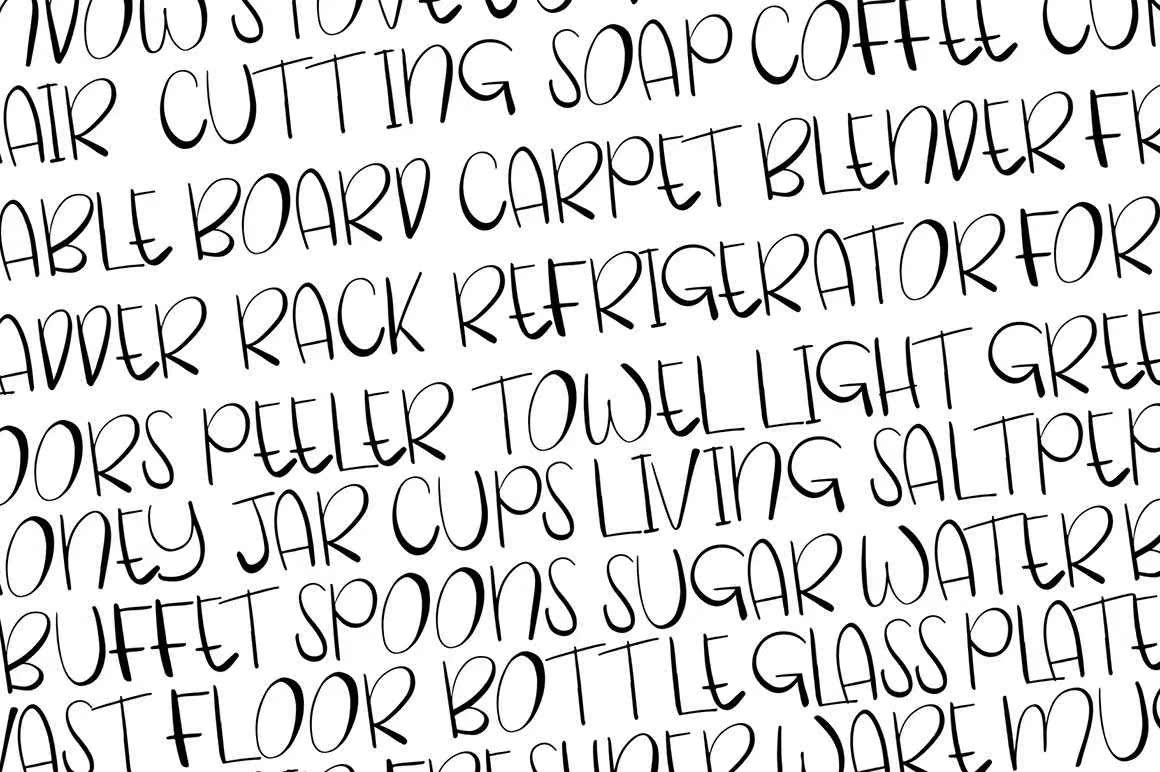 NDOW STOVE
AIR CUTTING SOAP COFFEE CU
ABLE BOARD CARPET BLENDER FR
ADDER RACK REFRIGERATOR FOR
OORS PEELER TOWEL LIGHT GREE
ONEY JAR CUPS LIVING SALTPEP
BUFFET SPOONS SUGAR WATER B
VAST FLOOR BOTTLE GLASS PLATE
WARE MU